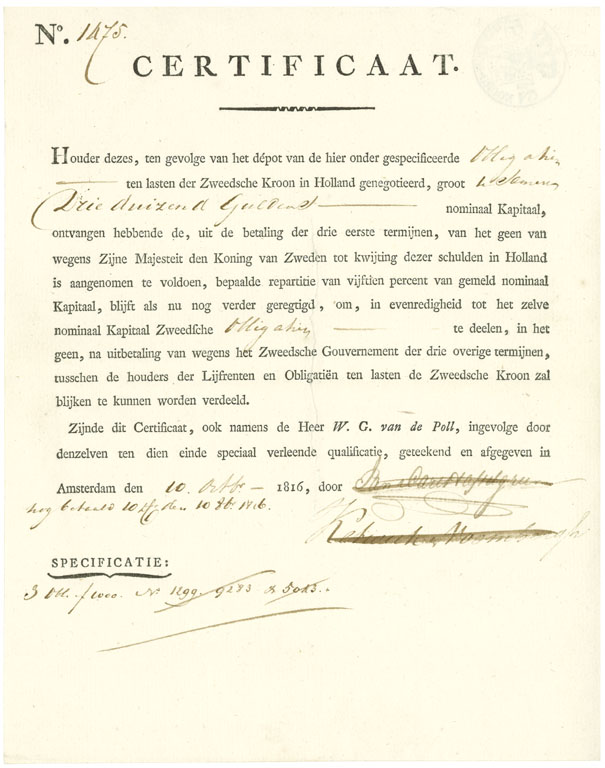 No. 1475.
CERTIFICAAT.
Houder dezes, ten gevolge van het dépot van de hier onder gespecificeerde Obligatien
ten lasten der Zweedsche Kroon in Holland genegotieerd, groot
Drie duizend Guldens nominaal Kapitaal,
ontvangen hebbende de, uit de betaling der drie eerste termijnen, van het geen van
wegens Zijne Majesteit den Koning van Zweden tot kwijting dezer schulden in Holland
is aangenomen te voldoen, bepaalde repartitie van vijftien percent van gemeld nominaal
Kapitaal, blijft als nu nog verder geregtigd, om, in evenredigheid tot het zelve
nominaal Kapitaal Zweedsche Obligatien te deelen, in het
geen, na uitbetaling van wegens het Zweedsche Gouvernement der drie overige termijnen,
tusschen de houders der Lijfrenten en Obligatiën ten lasten de Zweedsche Kroon zal
blijken te kunnen worden verdeeld.
Zijnde dit Certificaat, ook namens de Heer W. G. van de Poll, ingevolge door
denzelven ten dien einde speciaal verleende qualificatie, geteekend en afgegeven in
Amsterdam den 10. Octbr. 1816, door
nog betaald 10 den 10 1816.
SPECIFICATIE:
3 Obl. f 1000. No. 1299. 9283 & 5023.